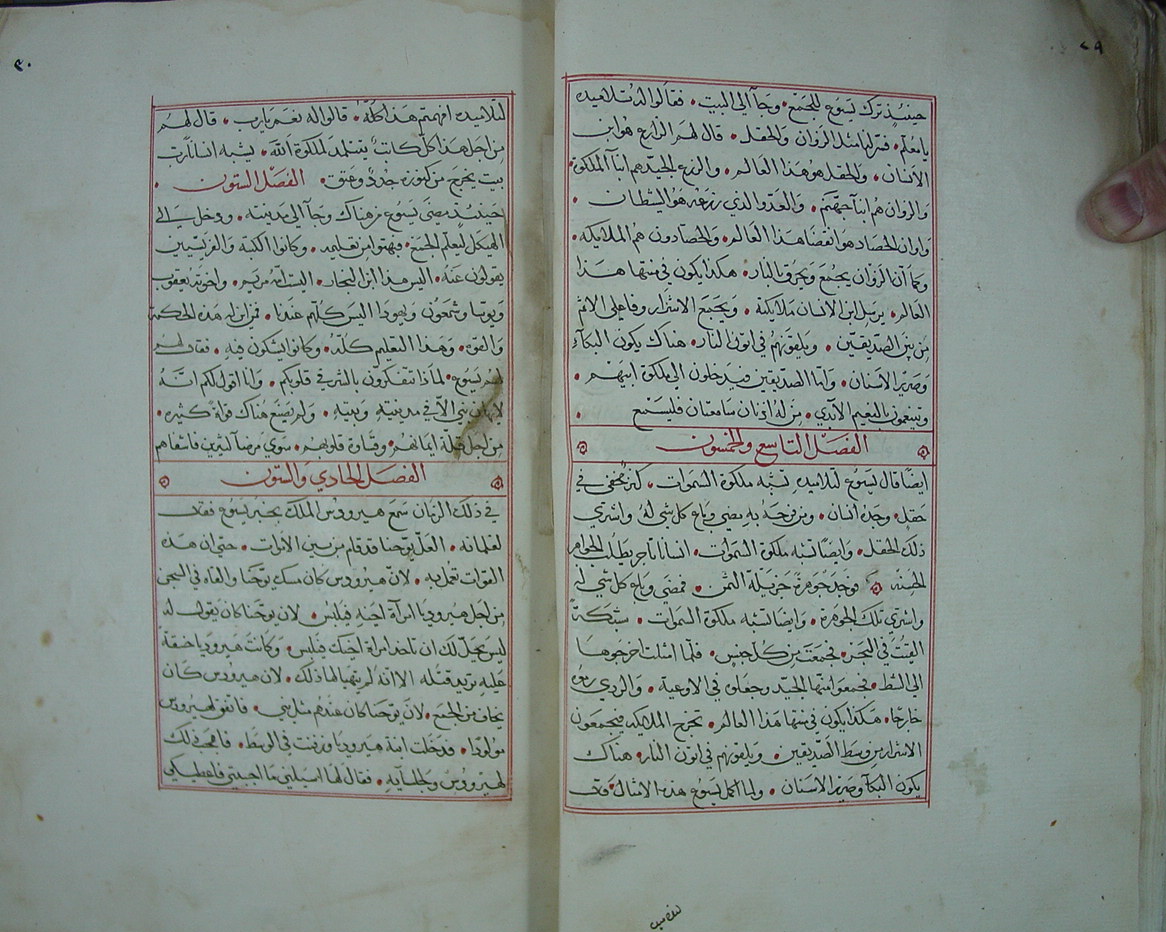 ٢٩
حينيذ ترك يسوع للجمع • وجآ الي البيت • فقالوا له تلاميده
يا معلم • فسر لنا مثل الزوان والحقل • قال لهم الزارع هو ابن
الانسان • والحقل هو هذا العالم • والزرع الجيد هم ابنآ الملكوة
والزوان هم ابنآ جهنم • والعدو الذي زرعه هو الشيطان •
واوان الحصاد هو انقضا هذا العالم • والحصادون هم الملايكه •
وكما ان الزوان يجمع ويحرق بالنار • هكذا يكون في منتها هذا
العالم • يرسل ابن الانسان ملايكته • ويجمع الاشرار وفاعلي الاثم
من بين الصديقين • ويلقونهم في اتون النار • هناك يكون البكآء
وصرير الاسنان • وآما الصديقين فيدخلون الي ملكوة ابيهم •
ويتنعمون بالنعيم الابدي • من له اذنان سامعتان فليستمع •
الفصل التاسع والخمسون
ايضاً قال يسوع لتلاميده تشبه ملكوة السموات • كنز مخفي في
حقل • وجده انسان • ومن فرحه به مضي وباع كل شي له واشتري
ذلك الحقل • وايضاً تشبه ملكوة السموات • انساناً تاجر يطلب الجواهر
الحسنه • فوجد جوهرة جزيلة الثمن • فمضي وباع كل شي له
واشتري تلك الجوهرة • وايضا تشبه ملكوة السموات • شبكة
القيت في البحر • فجمعت من كل جنس • فلما امتلت اخرجوها
الي الشط • فجمعوا منها الجيد وجعلوه في الاوعية • والردي رموه
خارجاً • هكذا يكون في منتها هذا العالم • تخرج الملايكه فيجمعون
الاشرار من وسط الصديقين • ويلقونهم في اتون النار • هناك
يكون البكآ وصرير الاسنان • ولما اكمل يسوع هذه الامثال • قال
لتلاميده
٣٠
لتلاميده افهمتم هذا كله • قالوا له نعم يارب • قال لهم
من اجل هذا كل كاتب يتتلمد لملكوة الله • يشبه انسانا رب
بيت يخرج من كنوزه جدد وعتق • الفصل الستون •
حينيذ مضي يسوع من هناك وجآ الي مدينته • ودخل الي
الهيكل ليعلم الجمع • فبهتوا من تعليمه • وكانوا الكتبة والفريسيين
يقولون عنه • اليس هذا ابن النجار • اليس امه مريم • واخوته يعقوب
ويوسا وشمعون ويهودا اليس كلهم عندنا • فمن اين له هذه الحكمة
والقوه • وهذا التعليم كله • وكانوا يشكون فيه • فقال لهم
يسوع • لماذا تتفكرون بالشر في قلوبكم • وانا اقول لكم انه
لايهان نبي الا في مدينته وبيته • ولم يصنع هناك قوة كثيره •
من اجل قلة ايمانهم • وقساوة قلوبهم • سوي مرضآ كثيرين فاشفاهم
الفصل الحادي والستون
في ذلك الزمان سمع هيرودس الملك بخبر يسوع فقال
لغلمانه • العل يوحنا قد قام من بين الاموات • حتي ان هذه
القوات تعمل به • لان هيرودس كان مسك يوحنا والقاه في السجن
من اجل هيروديا امرآة اخيه فيلبس • لان يوحنا كان يقول له
ليس يحل لك ان تاخد امراة اخيك فيلبس • وكانت هيروديا حنقة
عليه تريد قتله الا انه لم يتهيا لها ذلك • لان هيرودس كان
يخاف من الجمع • لان يوحنا كان عندهم مثل نبي • فاتفق لهيرودس
مولودا • فدخلت ابنة هيروديا ورقصت في الوسط • فاعجب ذلك
لهيرودس وجلسآيه • فقال لها اسيليني ما احببتي فاعطيكي